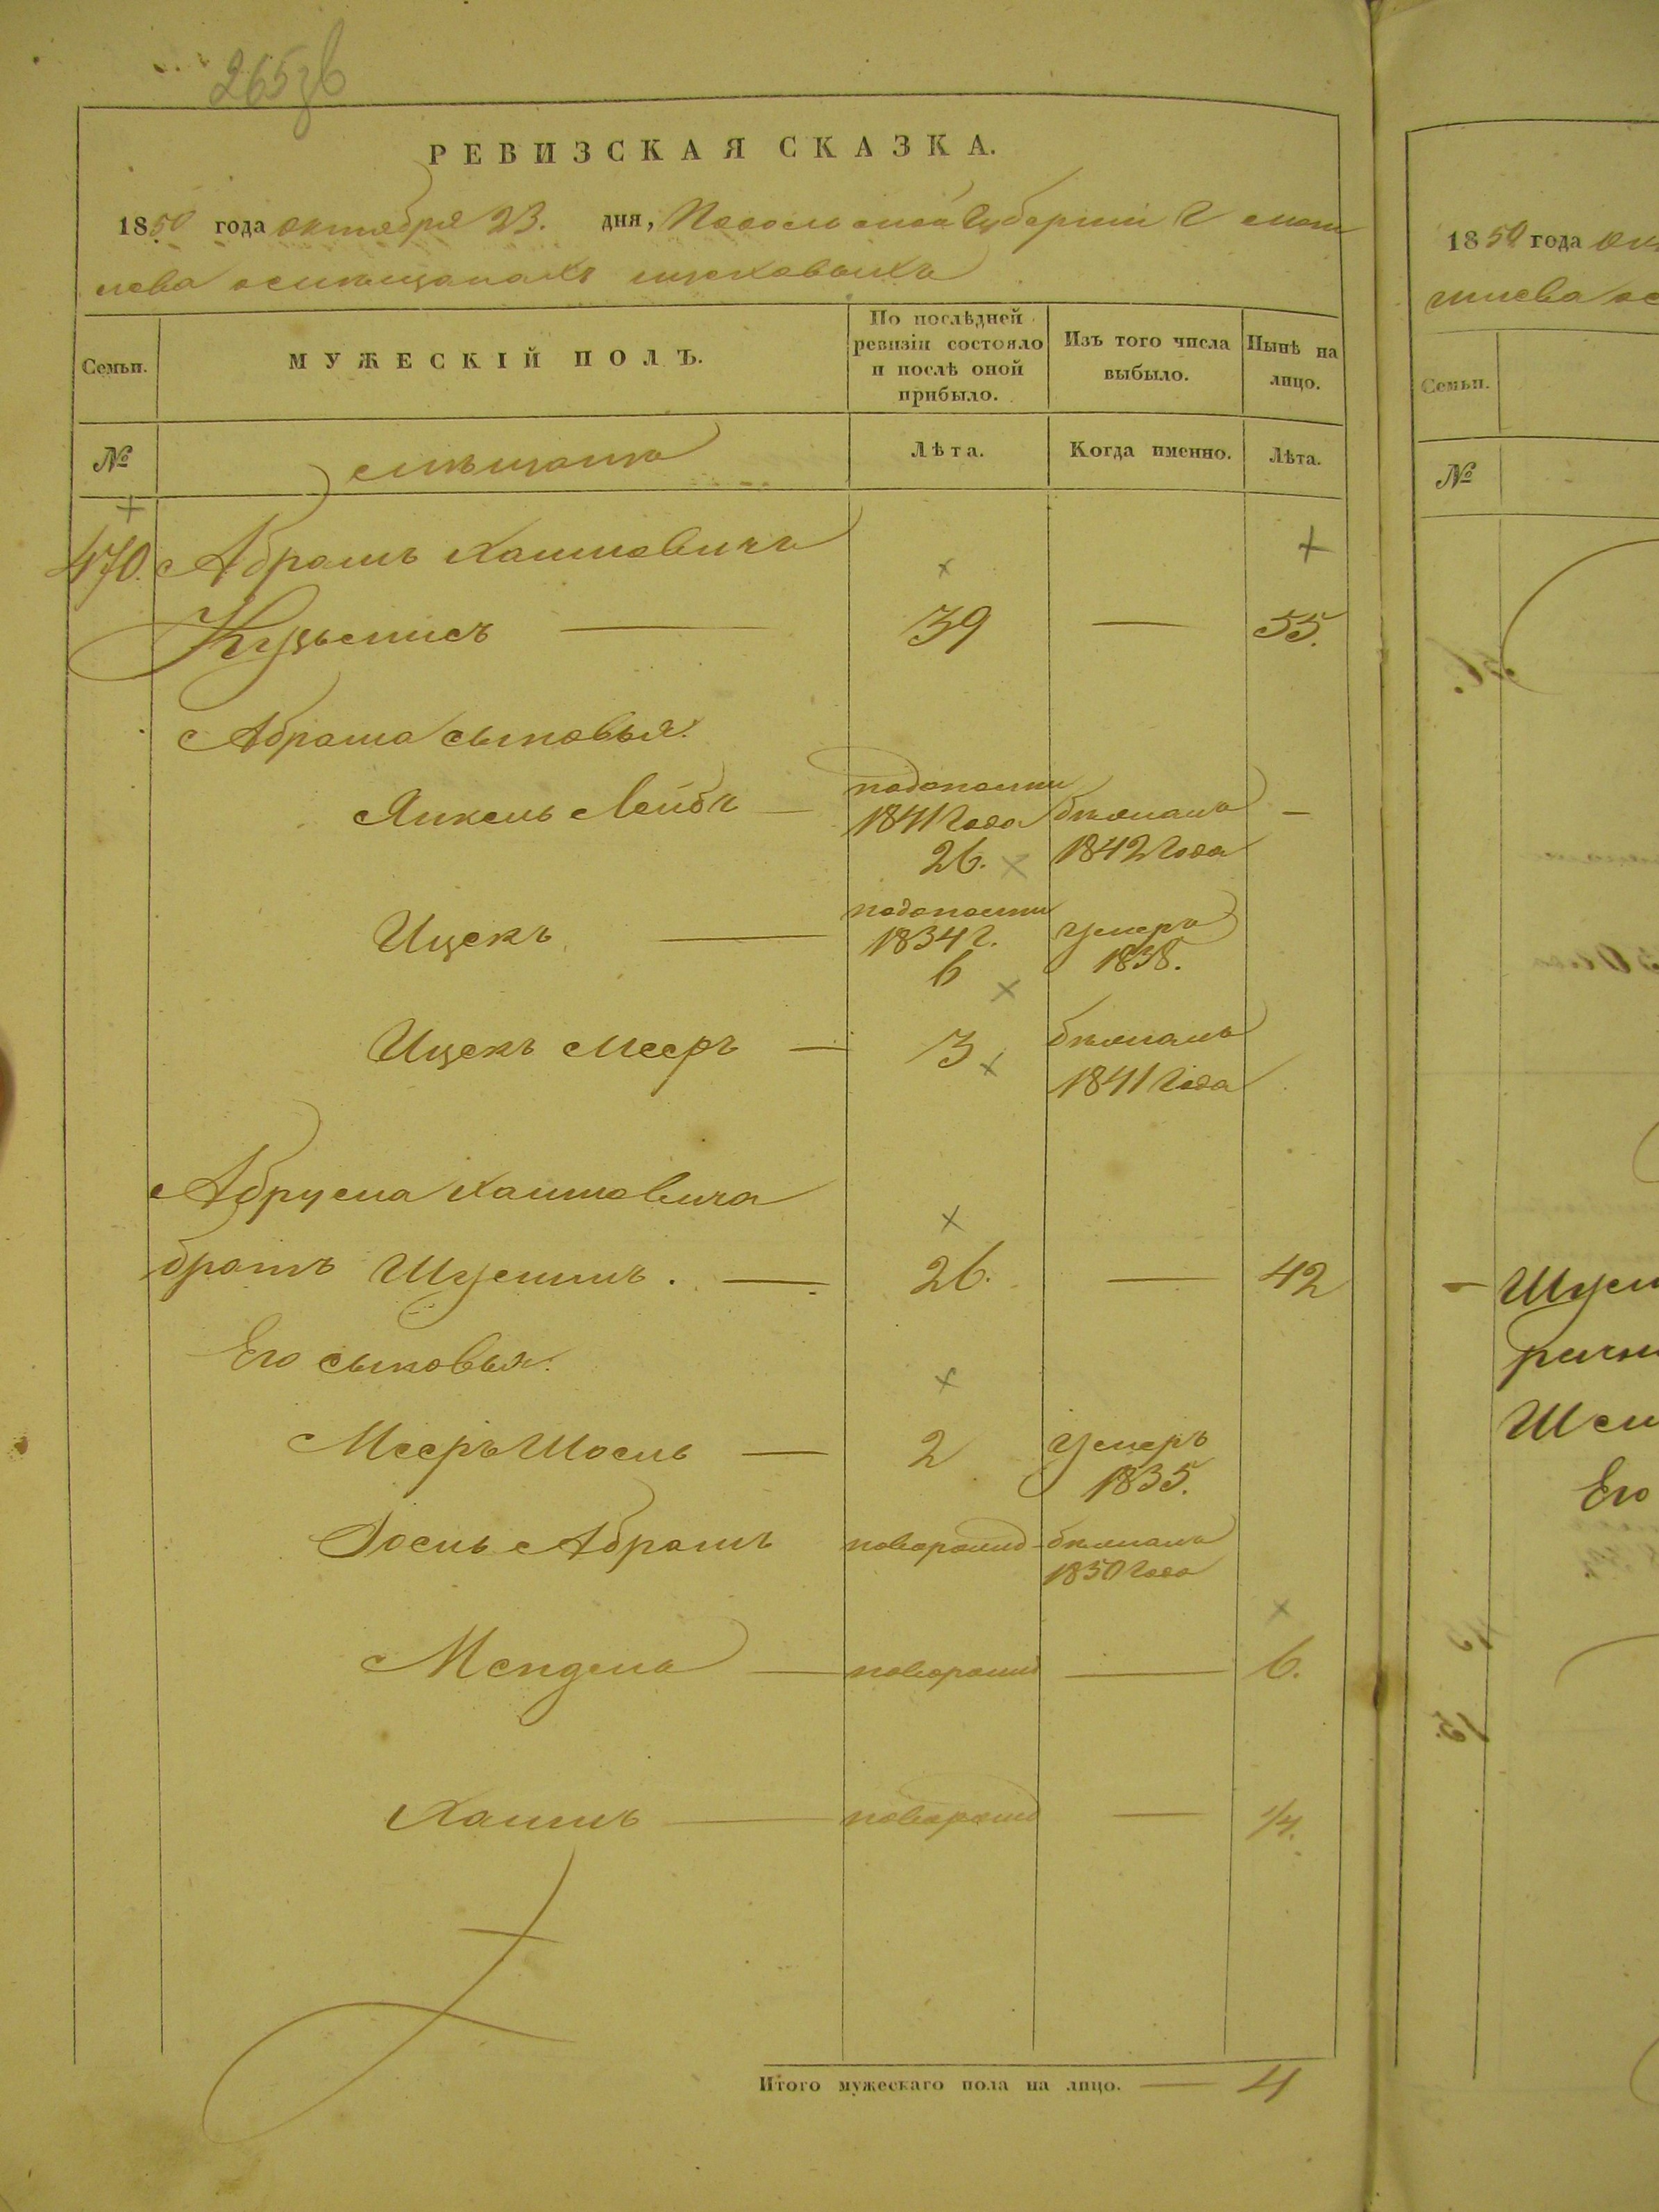 265 зв
РЕВИЗСКАЯ СКАЗКА.
1850 года октября 23. дня, Подольской Губернии Г моги
лева о мѣщанахъ
Семьи.
МУЖЕСКІЙ ПОЛЪ.
По послѣдней ревизіи состояло и послѣ оной прибыло.
Изъ того числа выбыло.
Нынѣ на лицо.
№
мѣщане
Лѣта.
Когда именно.
Лѣта.
470. Абрамъ Хаимовичъ
39 — 55.
Абрама сыновья:
Янкель Лейбъ — 1841 года 26. бѣжалъ 1842 года —
Ицекъ — 1834 г. 6 умеръ 1838.
Ицекъ Мееръ — 3 бѣжалъ 1841 года
Абрума Хаимовича
братъ Шулимъ. — 26. — 42
Его сыновья:
Мееръ Иосль — 2 умеръ 1835.
Иось Абрамъ новорожд бѣжалъ 1850 года
Мендель — новорожд — 6.
Хаимъ — новорожд — 1/4.
Итого мужескаго пола на лицо. — 4
1850 года
Семьи.
№
Его